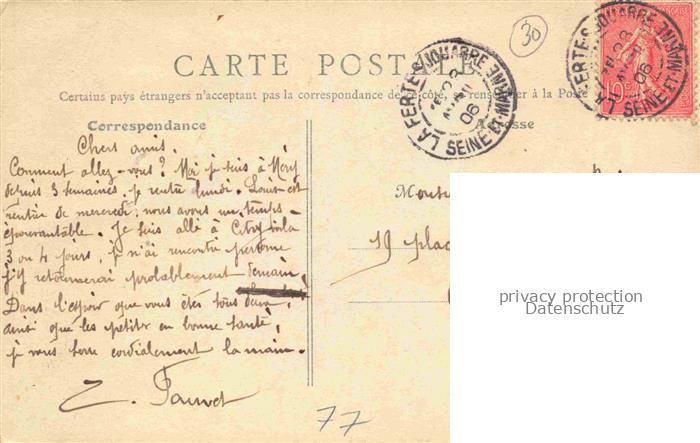 30
CARTE POSTALE
Certains pays étrangers n'acceptant pas la correspondance de ce côté, se renseigner à la Poste
LA FERTE-S-JOUARRE
SEINE-ET-MARNE
06
LA FERTE-S-JOUARRE
SEINE-ET-MARNE
06
10c
Correspondance
Adresse
Chers amis.
Comment allez-vous? Moi je suis à Méry
depuis 3 semaines, je rentre lundi. Louis est
rentré de mercredi; nous avons un temps
épouvantable. Je suis allé à Citry voila
3 ou 4 jours, je n'ai rencontré personne
j'y retournerai probablement demain,
Dans l'espoir que vous êtes tous deux,
ainsi que les petits en bonne santé,
je vous serre cordialement la main.
19 plac
privacy protection
Datenschutz
77